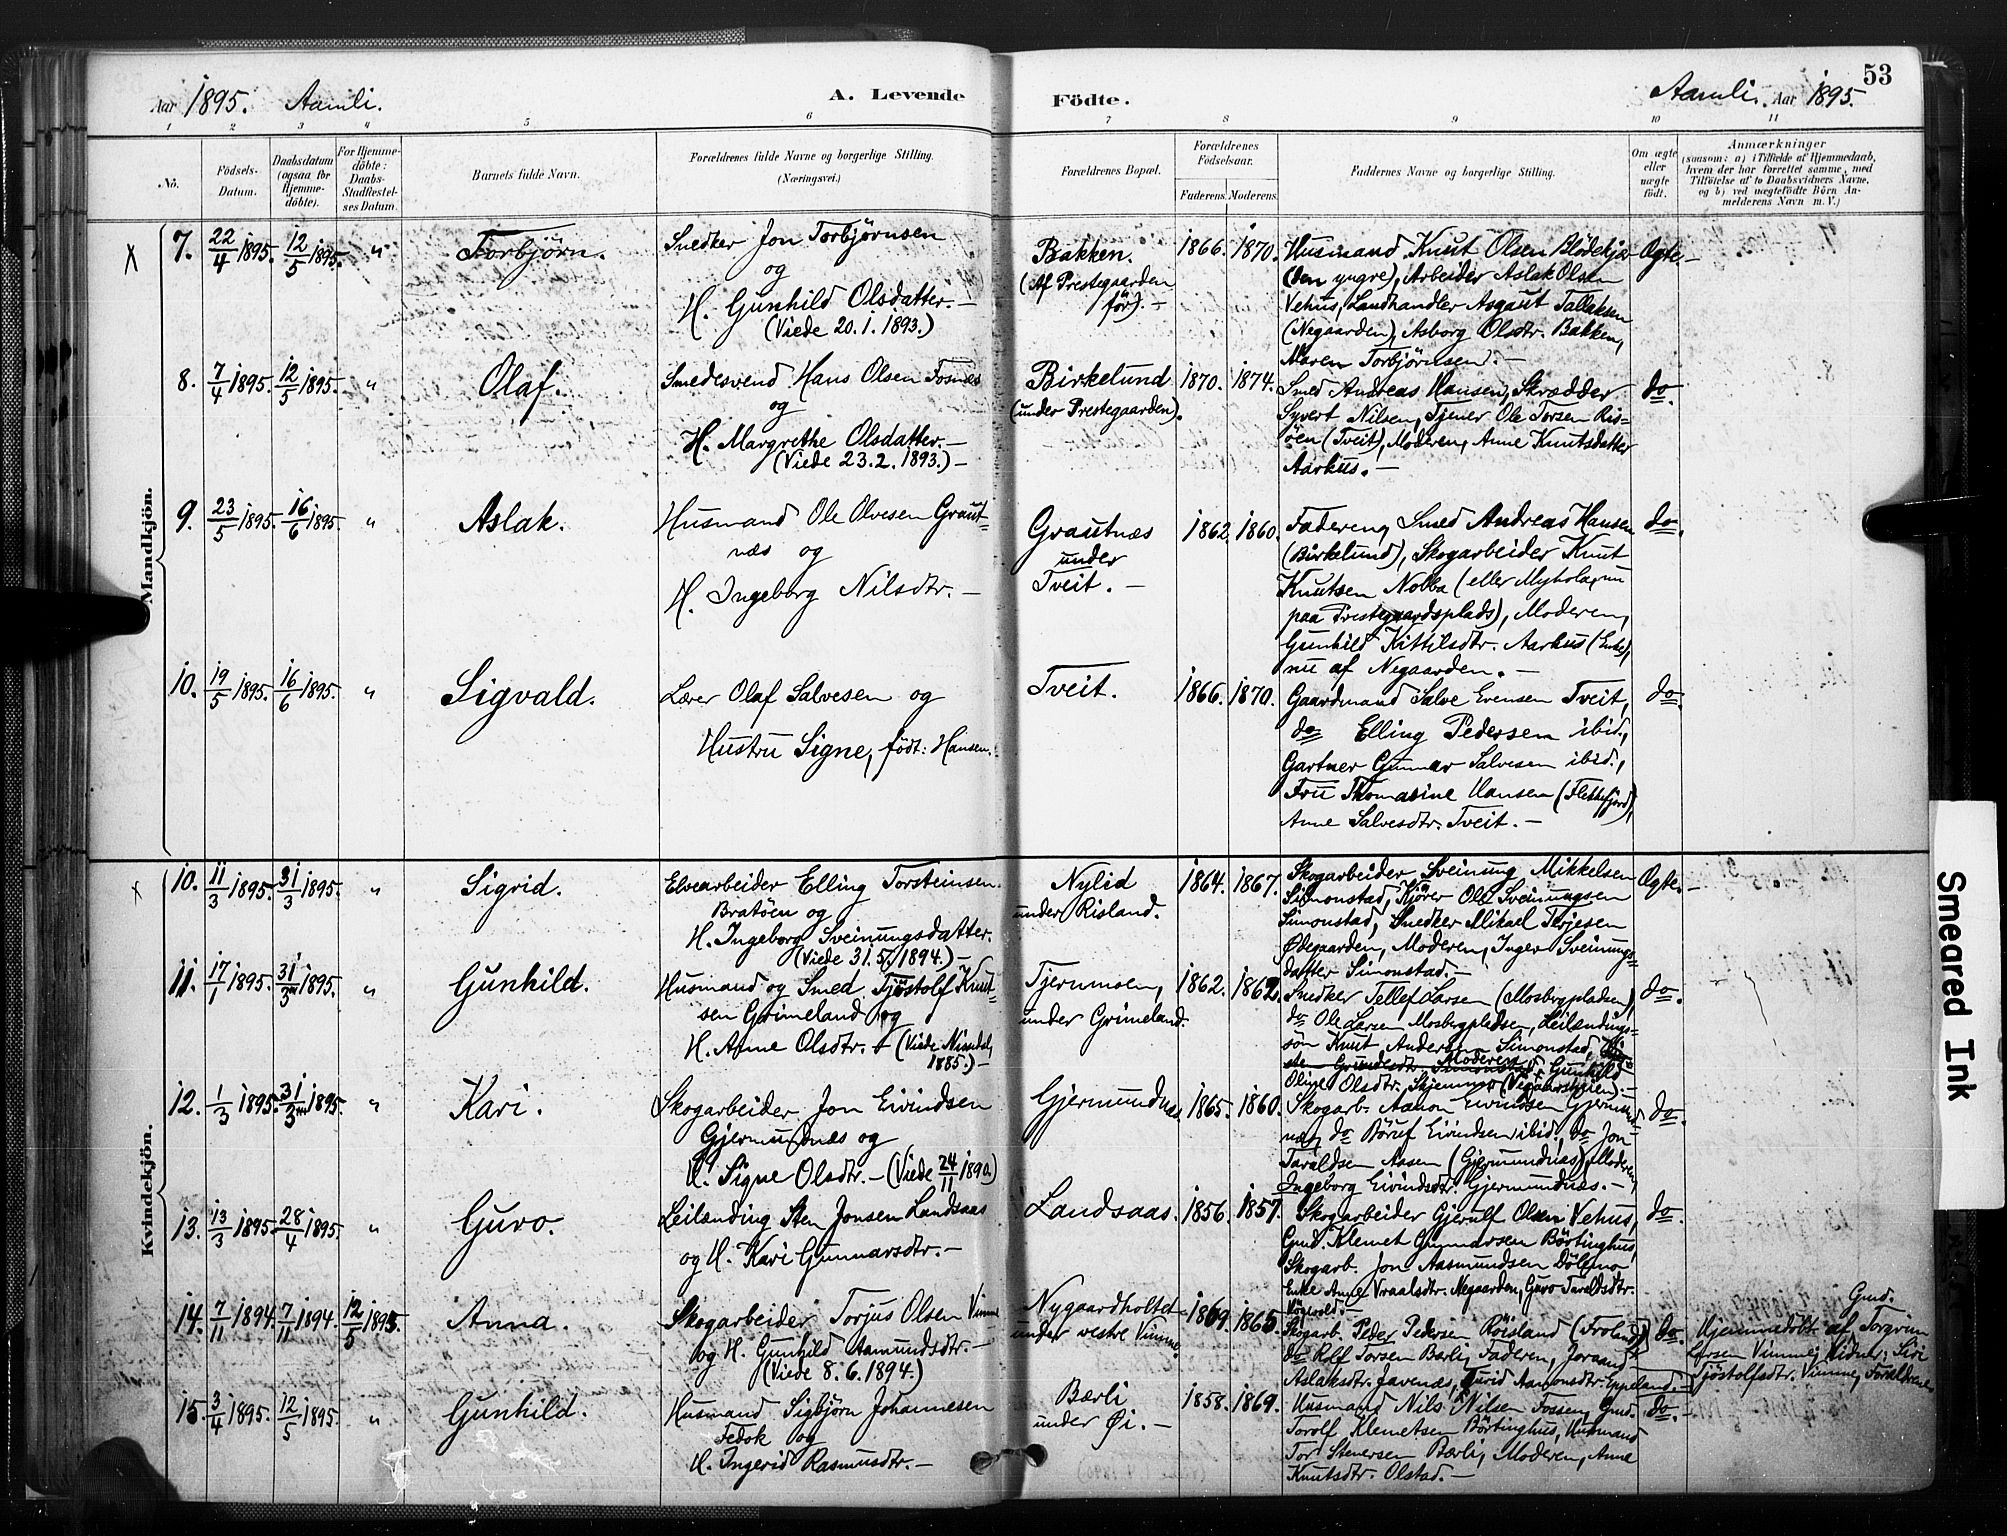 53
Aar 1895. Aamli. A. Levende Födte. Aamli. Aar 1895.
1 2 3 4 5 6 7 8 9 10 11
No.
Födsels-Datum.
Daabsdatum (ogsaa for Hjemmedöbte).
For Hjemmedöbte: Daabs-Stadfestelses Datum.
Barnets fulde Navn.
Forældrenes fulde Navne og borgerlige Stilling.
(Næringsvei.)
Forældrenes Bopæl.
Forældrenes Födselsaar.
Faderens. Moderens.
Faddernes Navne og borgerlige Stilling.
Om ægte eller uægte födt.
Anmærkninger
(saasom: a) i Tilfælde af Hjemmedaab, hvem der har forrettet samme, med Tilföielse af to Daabsvidners Navne, og b) ved uægtefödte Börn Anmelderens Navn m. V.)
Mandkjön.
7. 22/4 1895. 12/5 1895. " Torbjörn.
Snedker Jon Torbjörnsen
og
H. Gunhild Olsdatter. —
(Viede 20.1.1893.)
Bakken.
(Af Prestegaarden
för). —
1866. 1870.
Husmand Knut Olsen Blödekjær
(den yngre), Arbeider Aslak Olsen
Vehus, Landhandler Asgaut Tallaksen
(Negaarden), Asborg Olsdtr. Bakken,
Maren Torbjörnsen. —
Ægte —
8. 7/4 1895. 12/5 1895. " Olaf.
Smedesvend Hans Olsen Fosnes
og
H. Margrethe Olsdatter. —
(Viede 23.2.1893.) —
Birkelund
(under Prestegaarden).
1870. 1874.
Smed Andreas Hansen, Skrædder
Syvert Nilsen, Tjener Ole Torsen Ris-
öen (Tveit), Moderen, Anne Knutsdatter
Aarhus. —
do.
9. 23/5 1895. 16/6 1895. " Aslak.
Husmand Ole Olvesen Graut-
næs og
H. Ingeborg Nilsdtr. —
Grautnæs
under
Tveit. —
1862. 1860.
Faderen, Smed Andreas Hansen
(Birkelund), Skogarbeider Knut
Knutsen Nobba (eller Myhola, nu
paa Prestegaardsplads), Moderen,
Gunhild Kittilsdtr. Aarhus (Enke),
nu af Negaarden. —
do.
10. 19/5 1895. 16/6 1895. " Sigvald.
Lærer Olaf Salvesen og
Hustru Signe, födt: Hansen.
Tveit.
1866. 1870.
Gaardmand Salve Evensen Tveit,
do Elling Pedersen ibid.,
Gartner Gunnar Salvesen ibid.,
Fru Thomasine Hansen (Flekkefjord),
Anne Salvesdtr. Tveit. —
do.
Kvindekjön.
10. 11/3 1895. 31/3 1895. " Sigrid.
Elvearbeider Elling Torsteinsen
Bratöen og
H. Ingeborg Sveinungsdatter.
(Viede 31.5.1894.) —
Nylid
under Risland.
1864. 1867.
Skogarbeider Sveinung Mikkelsen
Simonstad, Kjörer Ole Sveinungsen
Simonstad, Snedker Mikael Terjesen
Ödegaarden, Moderen, Inger Sveinungs-
datter Simonstad. —
Ægte. —
11. 17/1 1895. 31/3 1895. " Gunhild.
Husmand og Smed Tjöstolf Knut-
sen Grimeland og
H. Anne Olsdtr. — (Viede
1885.) —
Tjernmoen,
under Grimeland.
1862. 1862.
Snedker Tellef Larsen (Mosbergpladsen),
do Ole Larsen Mosbergpladsen, Leilændings-
sön Knut Andersen Simonstad,
Moderen, Gunhild
Oline Olsdtr.
do.
12. 1/3 1895. 31/3 1895. " Kari.
Skogarbeider Jon Eivindsen
Gjermundnæs og
H. Signe Olsdtr. — (Viede 24/11 1890.)
Gjermundnæs.
1865. 1860.
Skogarb. Aanon Eivindsen Gjermund-
næs, do Böruf Eivindsen ibid., do Jon
Taraldsen Aasen (Gjermundnæs), Moderen,
Ingeborg Eivindsdtr. Gjermundnæs. —
do.
13. 13/3 1895. 28/4 1895. " Guro.
Leilænding Sten Jonsen Landsaas
og H. Kari Gunnarsdtr. —
Landsaas.
1856. 1857.
Skogarbeider Gjerulf Olsen Vehus,
Gmd. Klemet Gunnarsen Börtinghus,
Skogarb. Jon Aasmundsen Dölemo
Enke Anne Vraalsdtr. Negaarden, Guro Taraldsdtr.
do.
14. 7/11 1894. 7/11 1894. 12/5 1895. Anna.
Skogarbeider Torjus Olsen Vimme
og H. Gunhild Aamundsdtr. —
(Viede 8.6.1894.)
Nygaardholtet
under vestre Vimme.
1869. 1865.
Skogarb. Peder Pedersen Röisland (Froland),
do Rolf Torsen Bærli, Faderen, Joraand
Aslaksdtr. Javenæs, Turid Aamonsdtr. Eppeland. —
do.
Hjemmedöbt af Gmd. Torgrim
Larsen Vimme, Vidner: Siri
Tjöstolfsdtr. Vimme, Forældrene.
15. 3/4 1895. 12/5 1895. " Gunhild.
Husmand Sigbjörn Johannesen
Fedok og
H. Ingerid Rasmusdtr. —
Bærli
under Öi. —
1858. 1869.
Husmand Nils Nilsen Fossen, Gmd.
Torolf Klemetsen Börtinghus, Husmand
Tor Stenersen Bærli, Moderen, Anne
Knutsdtr. Olstad. —
do. —
Smeared Ink